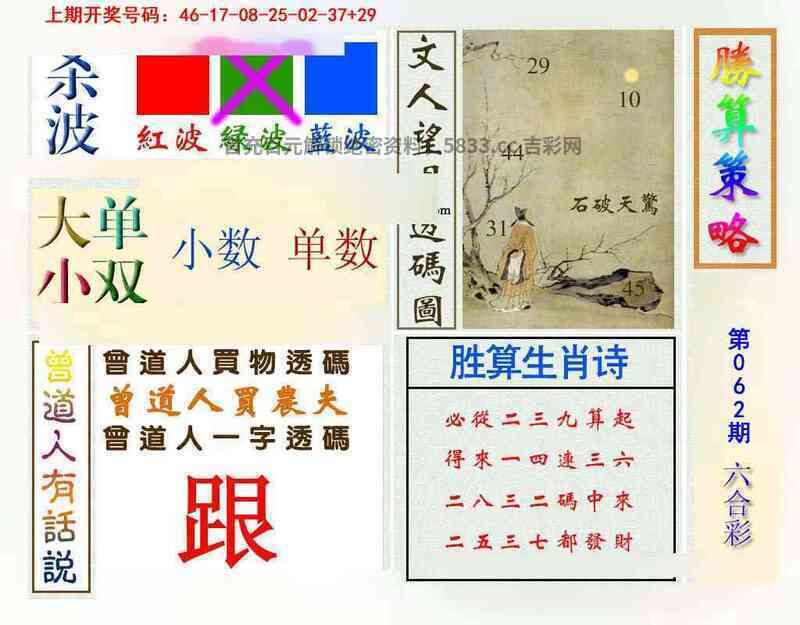 上期开奖号码：46-17-08-25-02-37+29
杀波
紅波 緑波 藍波
大单
小双
小数 单数
曾道人有話説
曾道人買物透碼
曾道人買農夫
曾道人一字透碼
跟
文人望月透碼圖
29
10
44
31
45
石破天驚
胜算生肖诗
必從二三九算起
得來一四連三六
二八三二碼中來
二五三七都發財
勝算策略
第062期
六合彩
5833.cc 吉彩网
om